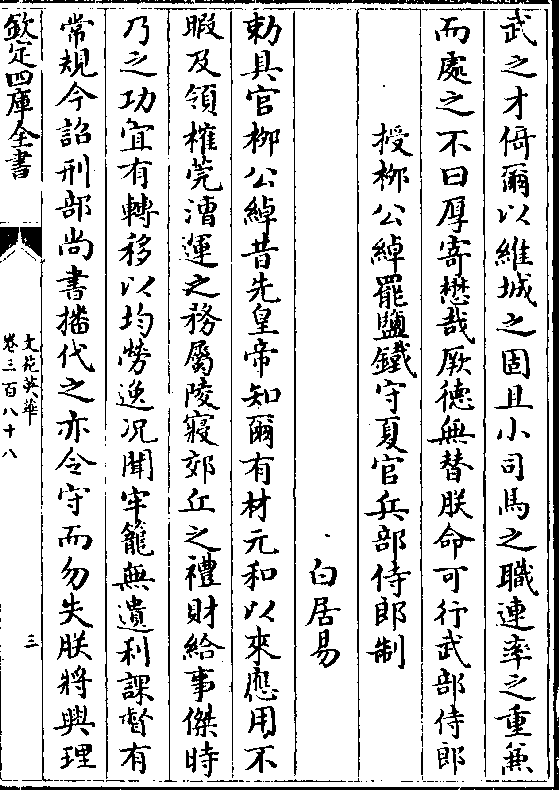 武之才倚爾以維城之固且小司馬之職連率之重兼
而處之不曰厚寄懋哉厥德無替朕命可行武部侍郎
授栁公綽罷鹽鐵守夏官兵部侍郎制
白居易
勅具官栁公綽昔先皇帝知爾有材元和以來應用不
暇及領榷筦漕運之務屬陵寢郊丘之禮財給事傑時
乃之功宜有轉移以均勞逸况聞牢籠無遺利課督有
常規今詔刑部尚書播代之亦令守而勿失朕將與理
欽定四庫全書
文苑英華
卷三百八十八
三